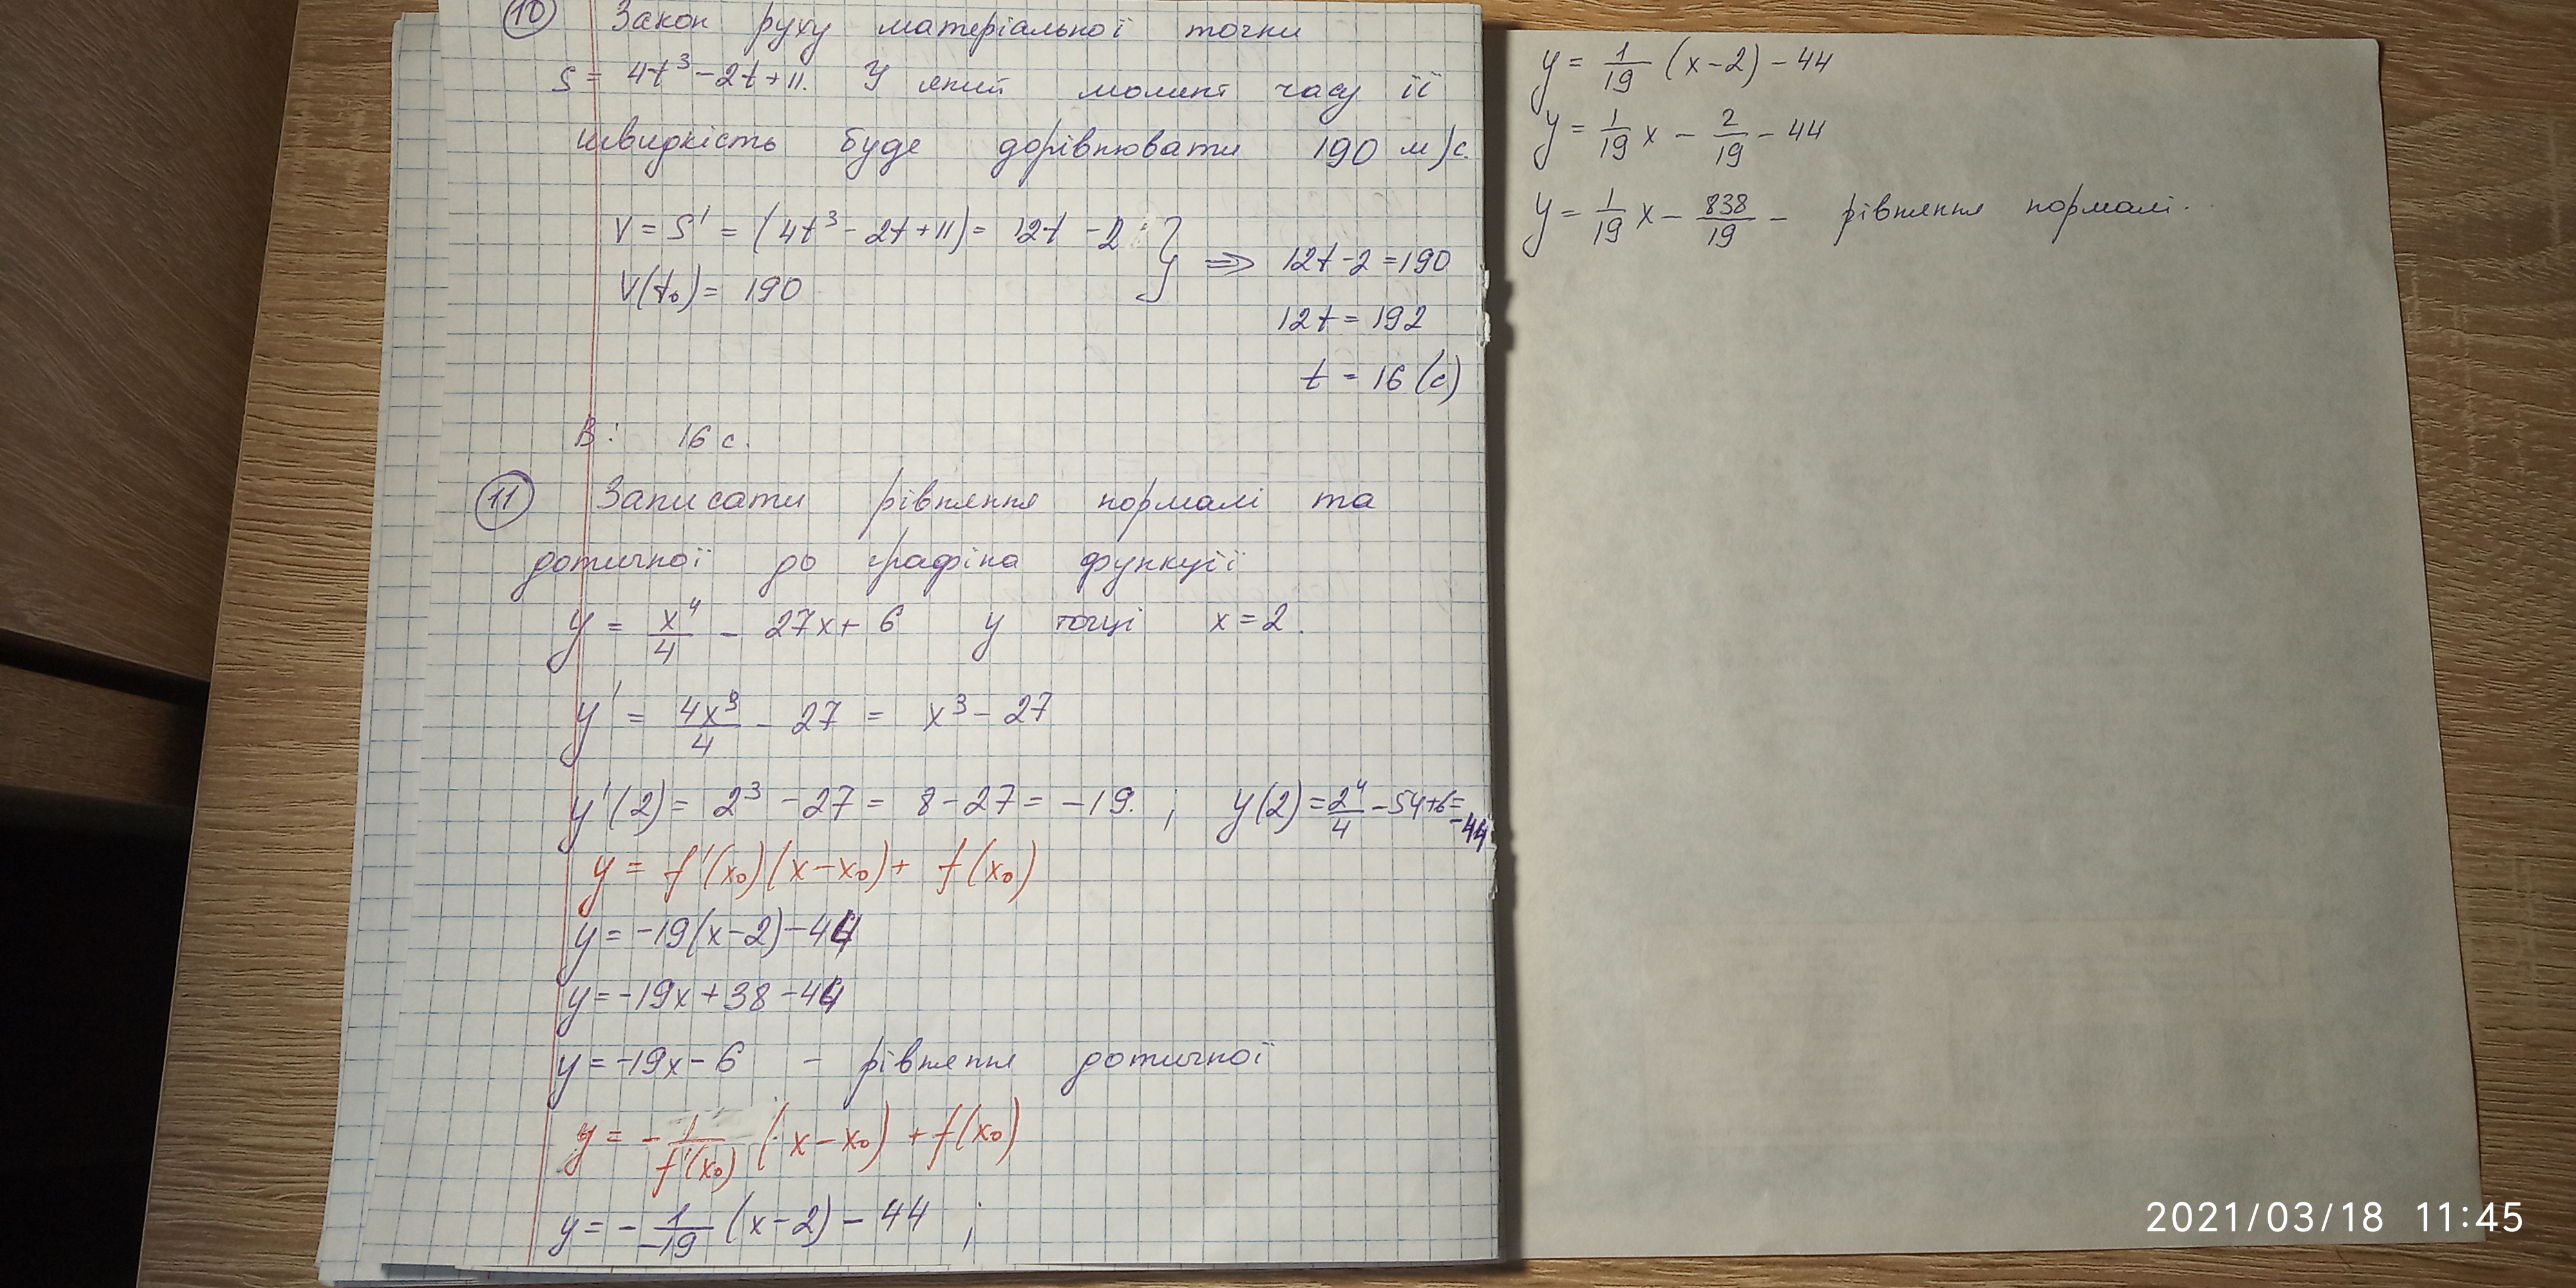 10 Закон руху матеріальної точки
S = 4t³ - 2t + 11. У який момент часу її
швидкість буде дорівнювати 190 м/с.
V = S' = (4t³ - 2t + 11) = 12t - 2 } ⇒ 12t - 2 = 190
V(t₀) = 190
12t = 192
t = 16 (с)
В: 16 с.
11 Записати рівняння нормалі та
дотичної до графіка функції
y = x⁴/4 - 27x + 6 у точці x = 2.
y' = 4x³/4 - 27 = x³ - 27
y'(2) = 2³ - 27 = 8 - 27 = -19. ; y(2) = 2⁴/4 - 54 + 6 = -44
y = f'(x₀)(x - x₀) + f(x₀)
y = -19(x - 2) - 44
y = -19x + 38 - 44
y = -19x - 6 - рівняння дотичної
y = - 1/f'(x₀) (x - x₀) + f(x₀)
y = - 1/-19 (x - 2) - 44 ;
y = 1/19 (x - 2) - 44
y = 1/19 x - 2/19 - 44
y = 1/19 x - 838/19 - рівняння нормалі.
2021/03/18 11:45